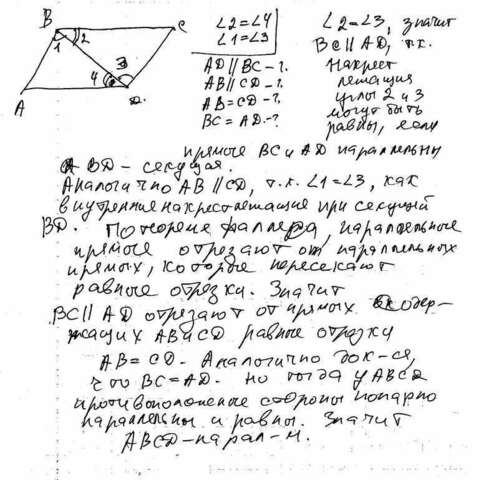 B
C
1
2
3
4
A
D
∠2=∠4
∠1=∠3
AD ∥ BC - ?
AB ∥ CD - ?
AB = CD - ?
BC = AD - ?
∠2=∠3, значит
BC ∥ AD, т.к.
накрест
лежащие
углы 2 и 3
могут быть
равны, если
прямые BC и AD параллельны
а BD - секущая.
Аналогично AB ∥ CD, т.к. ∠1=∠3, как
внутренние накрестлежащие при секущей
BD. По теореме Фаллеса, параллельные
прямые отрезают от параллельных
прямых, которые пересекают
равные отрезки. Значит
BC ∥ AD отрезают от прямых содер-
жащих AB и CD равные отрезки
AB = CD. Аналогично док-ся,
что BC = AD. Но тогда у ABCD
противоположные стороны попарно
параллельны и равны. Значит
ABCD - парал-м.